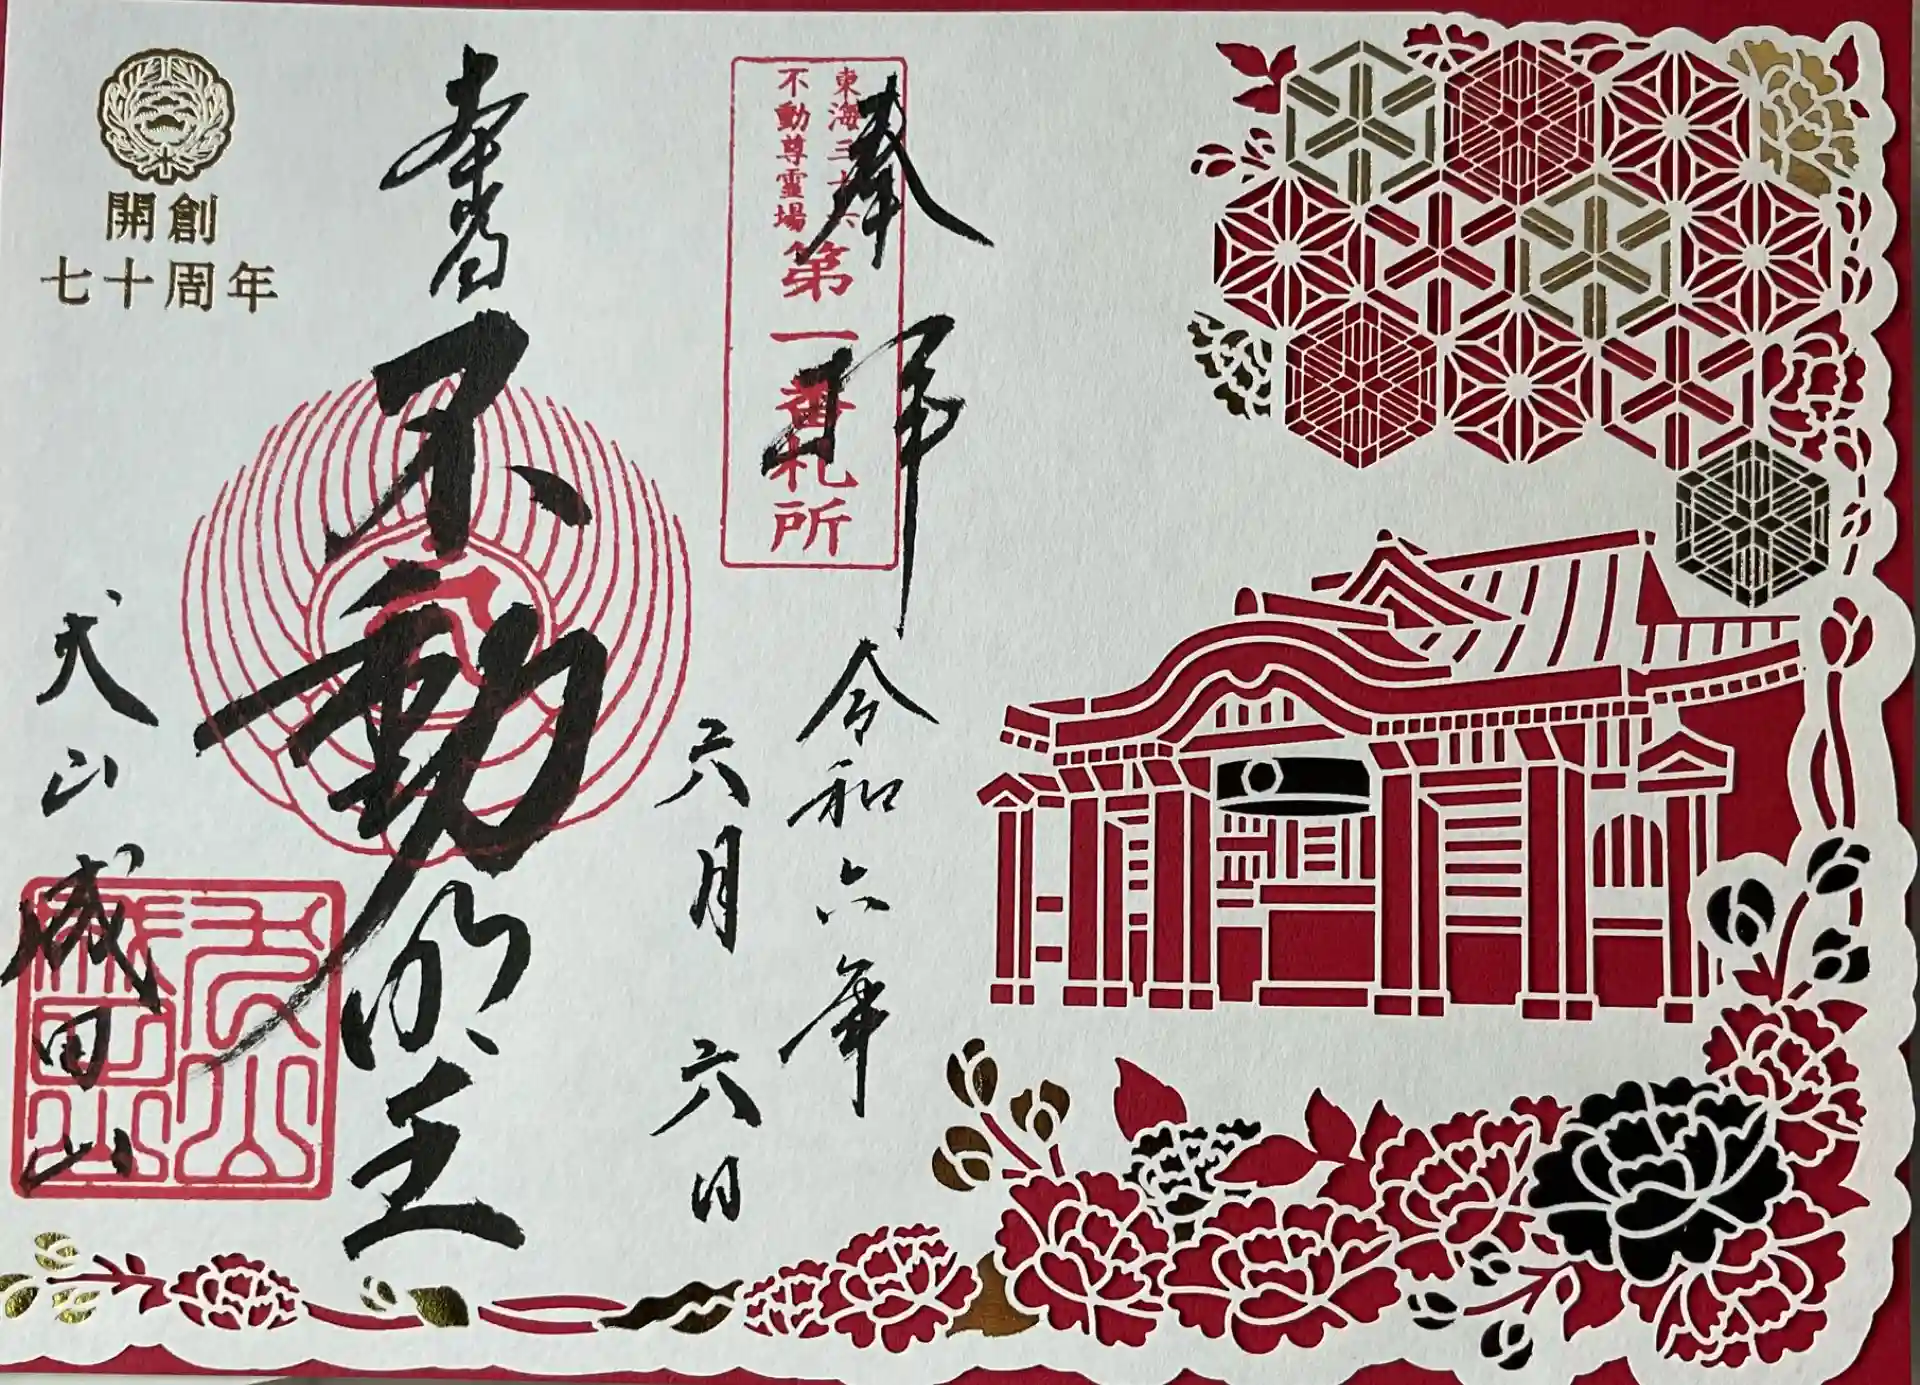 奉拝
東海三十六
不動尊霊場
第一番札所
令和六年
六月六日
本尊
不動明王
開創
七十周年
犬山成田山